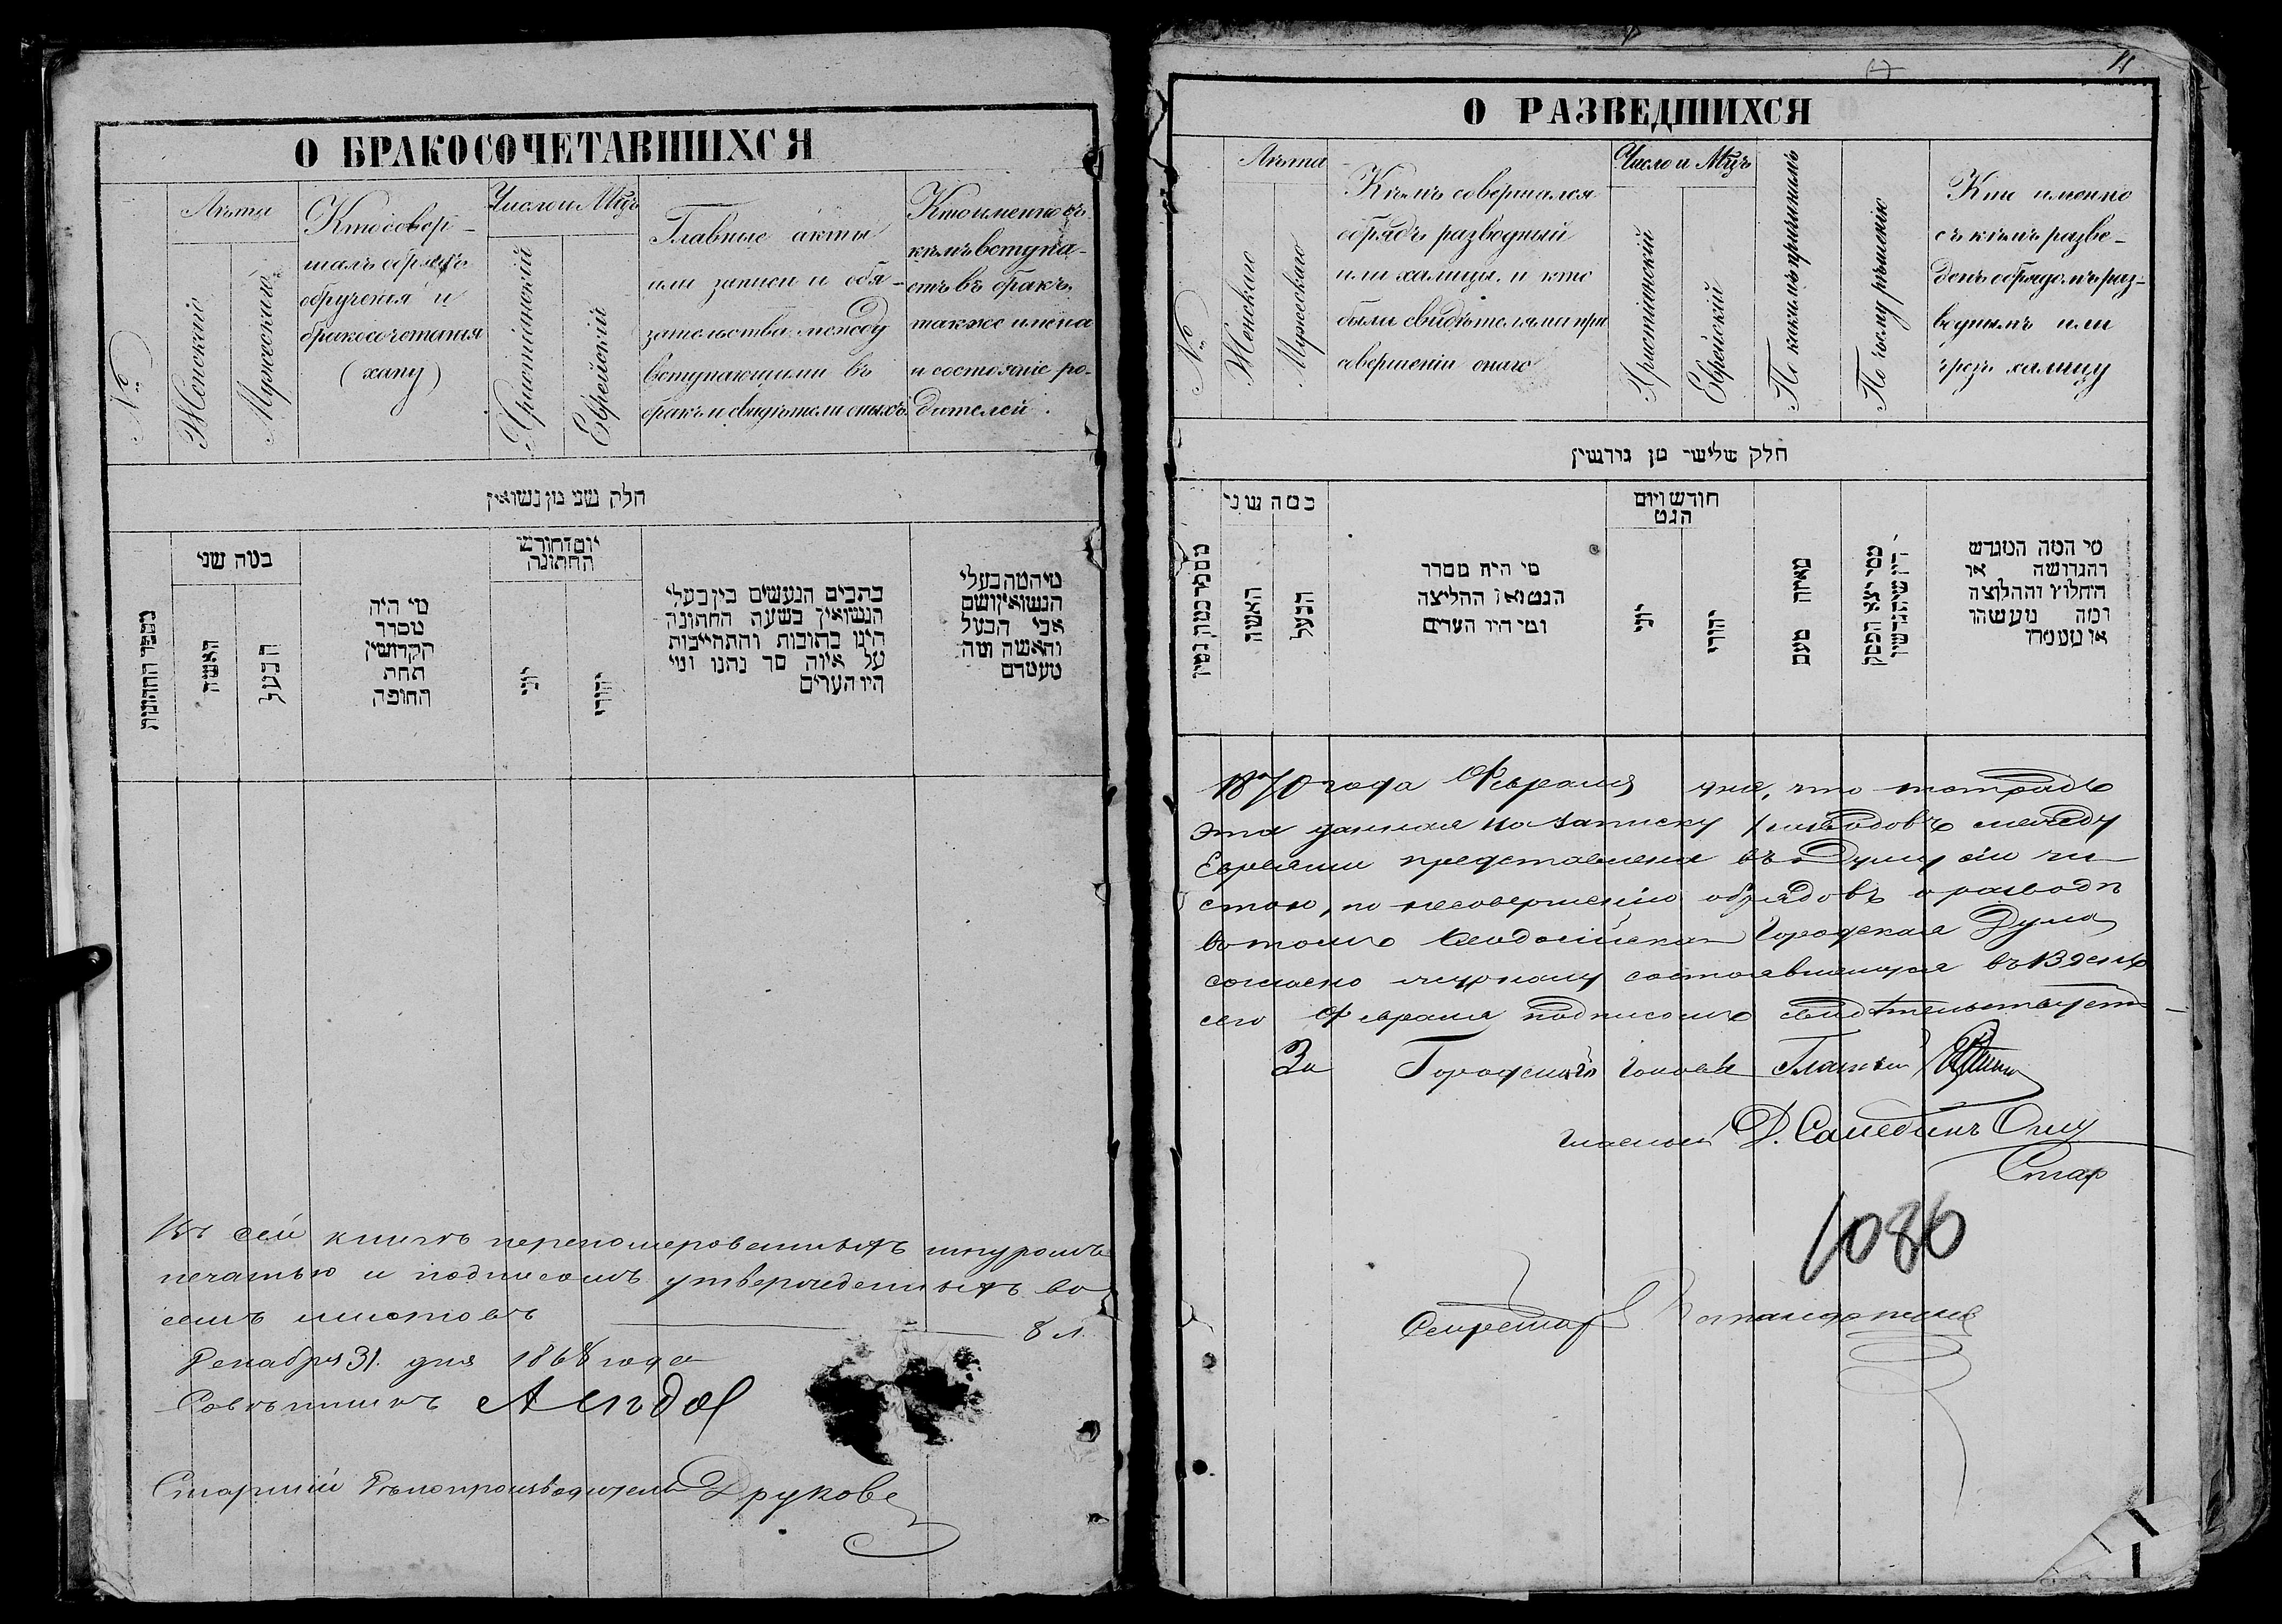 О БРАКОСОЧЕТАВШИХСЯ
№
Лѣта
Женскій
Мужескій
Кто совер-
шалъ обрядъ
обрученія и
бракосочетанія
(хапу)
Число и Мцъ
Христіанскій
Еврейскій
Главные акты
или записи и обя-
зательства между
вступающими въ
бракъ и свидѣтели оныхъ
Кто именно съ
кѣмъ вступа-
етъ въ бракъ,
также имена
и состояніе ро-
дителей.
חלק שני מן נשואין
מספר החתונות
במה שני
האשה
הבעל
מי היה
מסדר
הקדושין
תחת
החופה
יום וחודש
החתונה
יוני
יהודי
בתבים הנעשים בין בעלי
הנשואין בשעה החתונה
היינו בתובות והתחייבות
על איזה סך נתנו ומי
היו הערים
מי המה בעלי
הנשואין ושם
אבי הבעל
והאשה ומה
מעמדם
Въ сей книгѣ перепомерованныхъ шнуромъ
печатью и подписомъ утвержденныхъ во
семь листовъ 8 л.
Декабря 31. дня 1868 года
Совѣтникъ
Старшій Дѣлопроизводитель Друкове
О РАЗВЕДШИХСЯ
№
Лѣта
Женскаго
Мужескаго
Кѣмъ совершался
обрядъ разводный
или халицы, и кто
были свидѣтелями при
совершеніи онаго
Число и Мцъ
Христіанскій
Еврейскій
По какимъ причинамъ
По чьему рѣшенію
Кто именно
съ кѣмъ разве-
денъ обрядомъ раз-
воднымъ или
чрезъ халицу
חלק שלישי מן גורשין
כמה שני
האשה
הבעל
מי היה מסדר
הגט ואו ההליצה
ומי היו הערים
חודש ויום
הגט
יוני
יהודי
מאיזה טעם
מי המה המגרש
והגרושה או
החלוץ וההלוצה
ומה מעשהו
או מעמדו
1870 года Февраля дня, что тетрадь
эта данная на записку разводовъ между
Евреями представлена въ Думу сію чи-
стою, по несовершенію обрядовъ о разводѣ
въ томъ Феодосійская Городская Дума
согласно журналу состоявшемуся въ 13 день
сего Февраля подписомъ свидѣтельствуетъ
За Городскаго голову Гласный
гласный Д.
Стар
1086
Секретарь